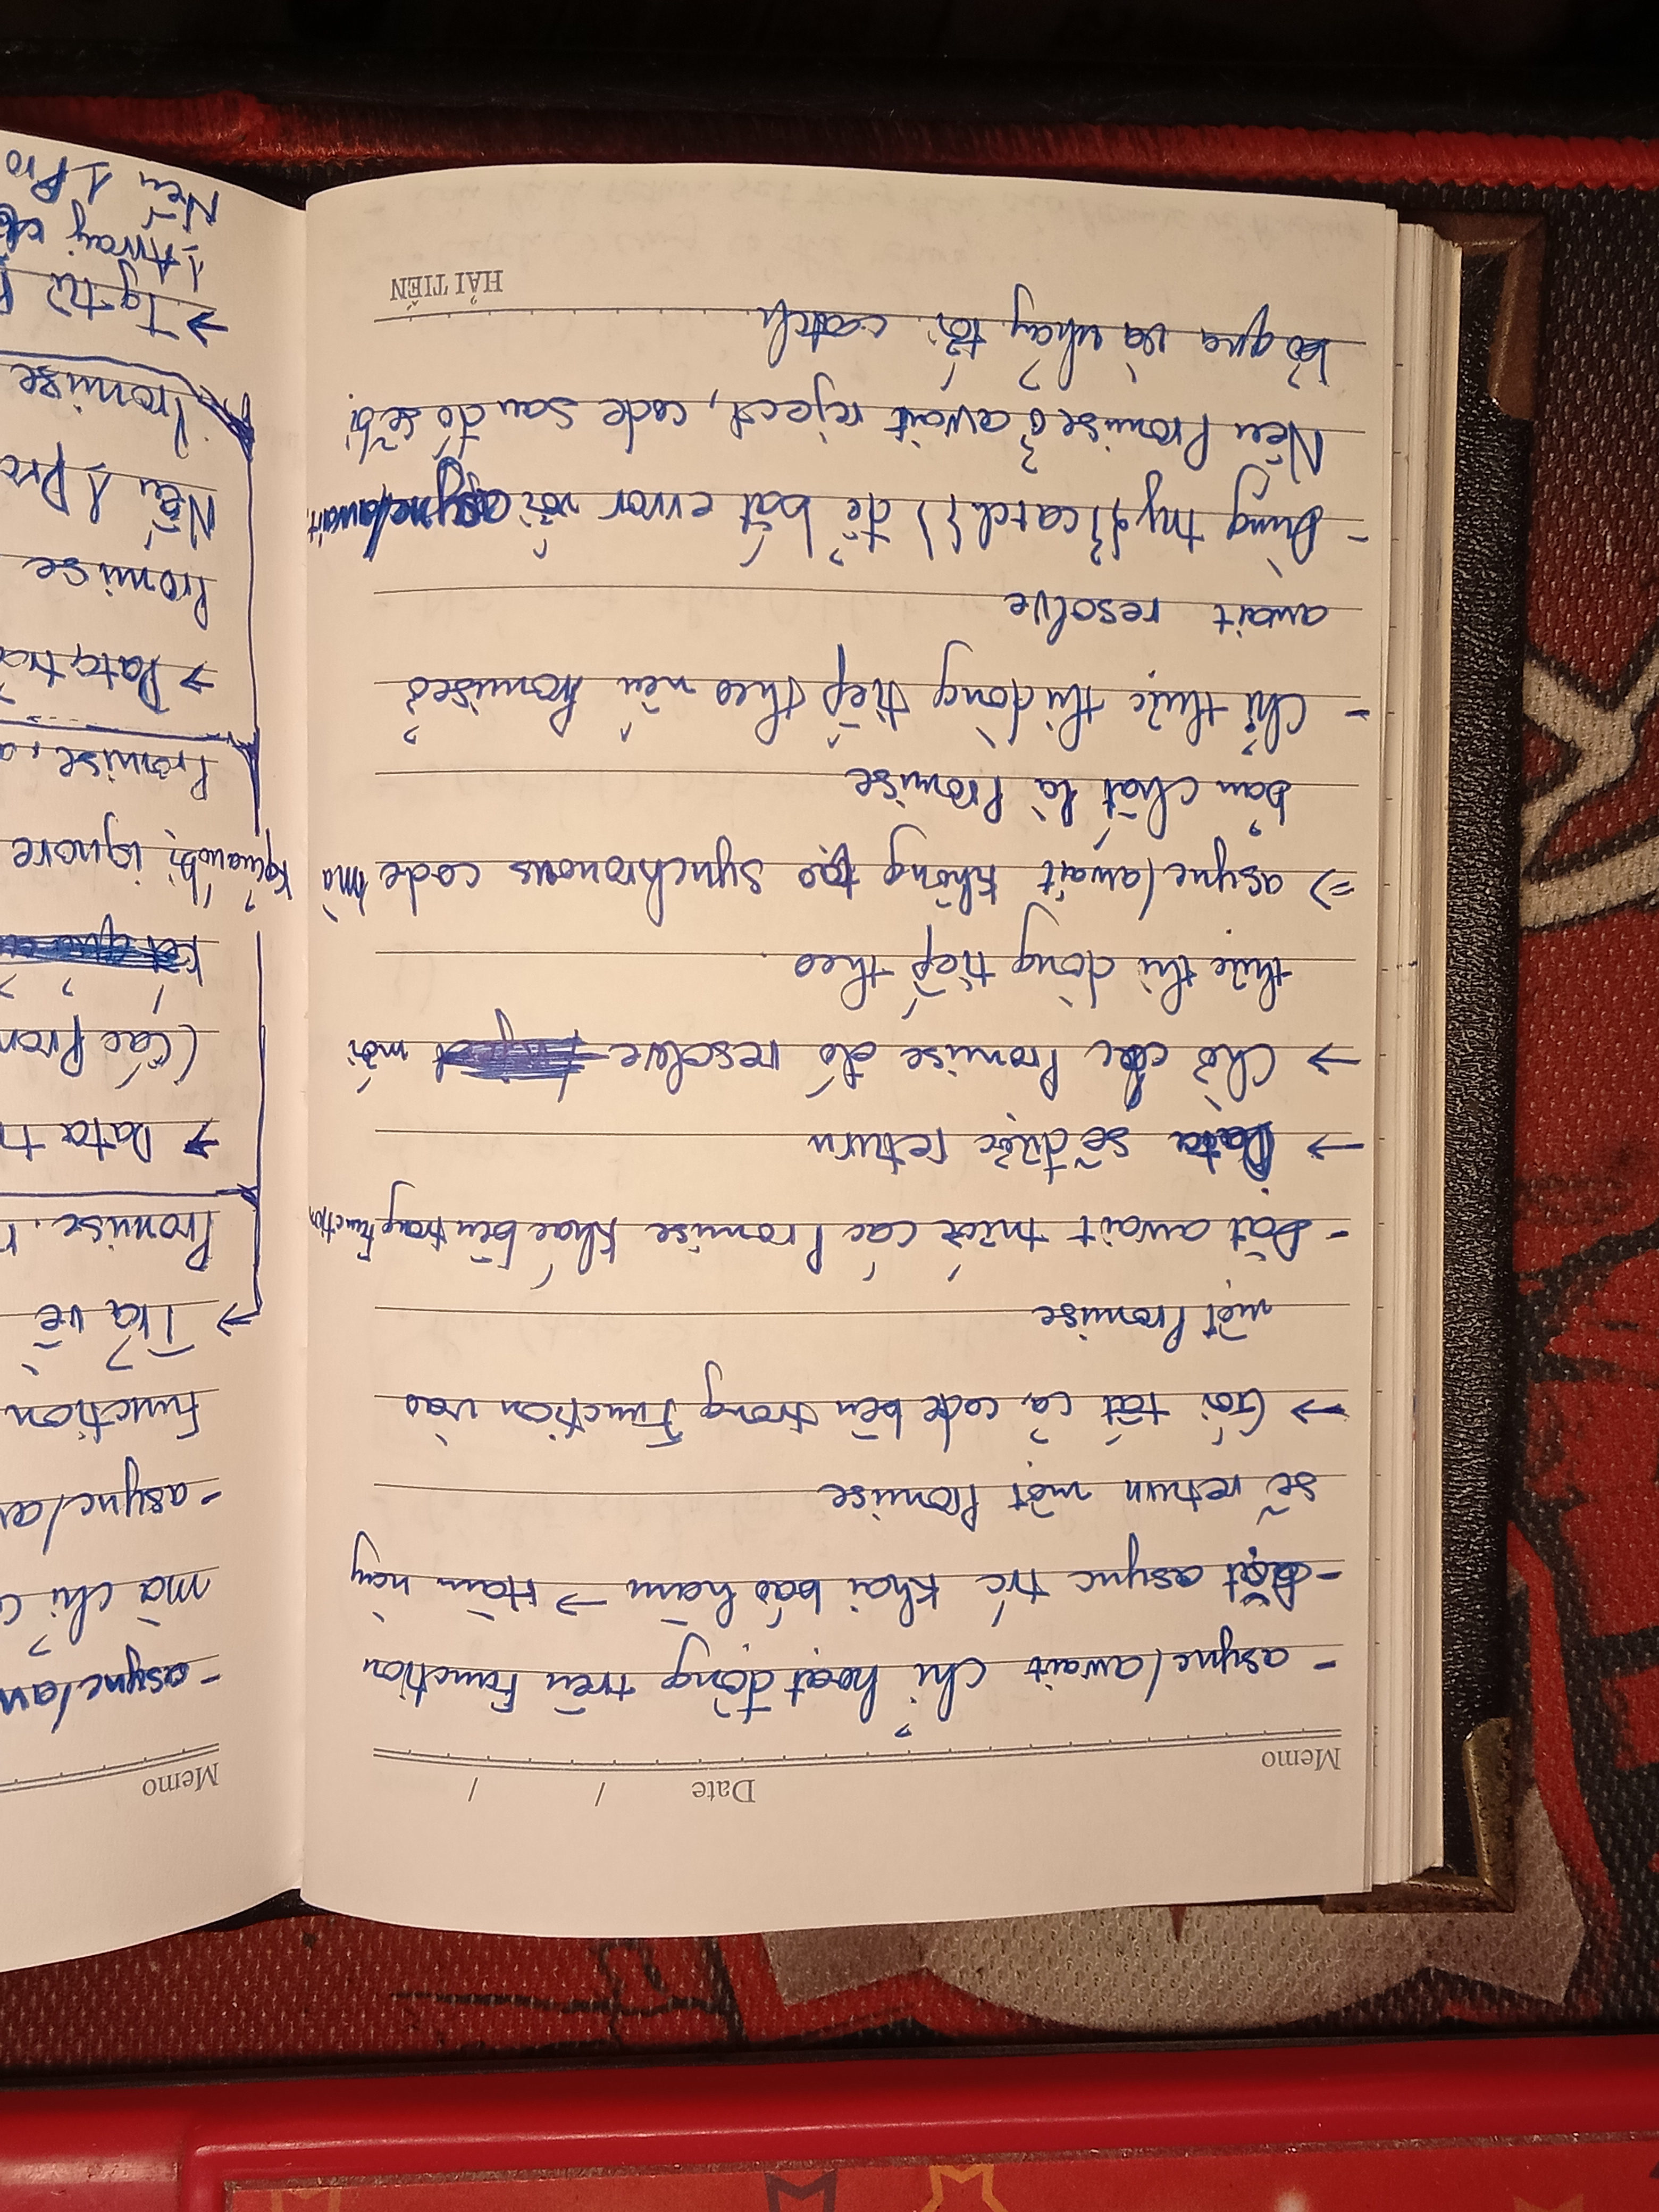 Memo Date / /
- async/await chỉ hoạt động trên Function
- Đặt async trc khai báo hàm → Hàm này
sẽ return một Promise
→ Gói tất cả code bên trong Function vào
một Promise
- Đặt await trước các Promise khác bên trong Function
→ Data sẽ được return
→ Chờ các Promise đó resolve mới
thực thi dòng tiếp theo.
=> async/await không tạo synchronous code mà
bản chất là Promise
- Chỉ thực thi dòng tiếp theo nếu Promise ở
await resolve
- Dùng try{} catch{} để bắt error với async/await.
Nếu Promise ở await reject, code sau đó sẽ bị
bỏ qua và nhảy tới catch
HẢI TIẾN
Memo
- async/aw
mà chỉ c
- async/aw
Function
→ Trả về
Promise. r
→ Data tr
(Các Pron
kquả nó bị ignore
Promise. a
→ Data trả
Promise
Nếu 1 Pro
Promise
→ Tg từ
1 Array
Nếu 1 Pro